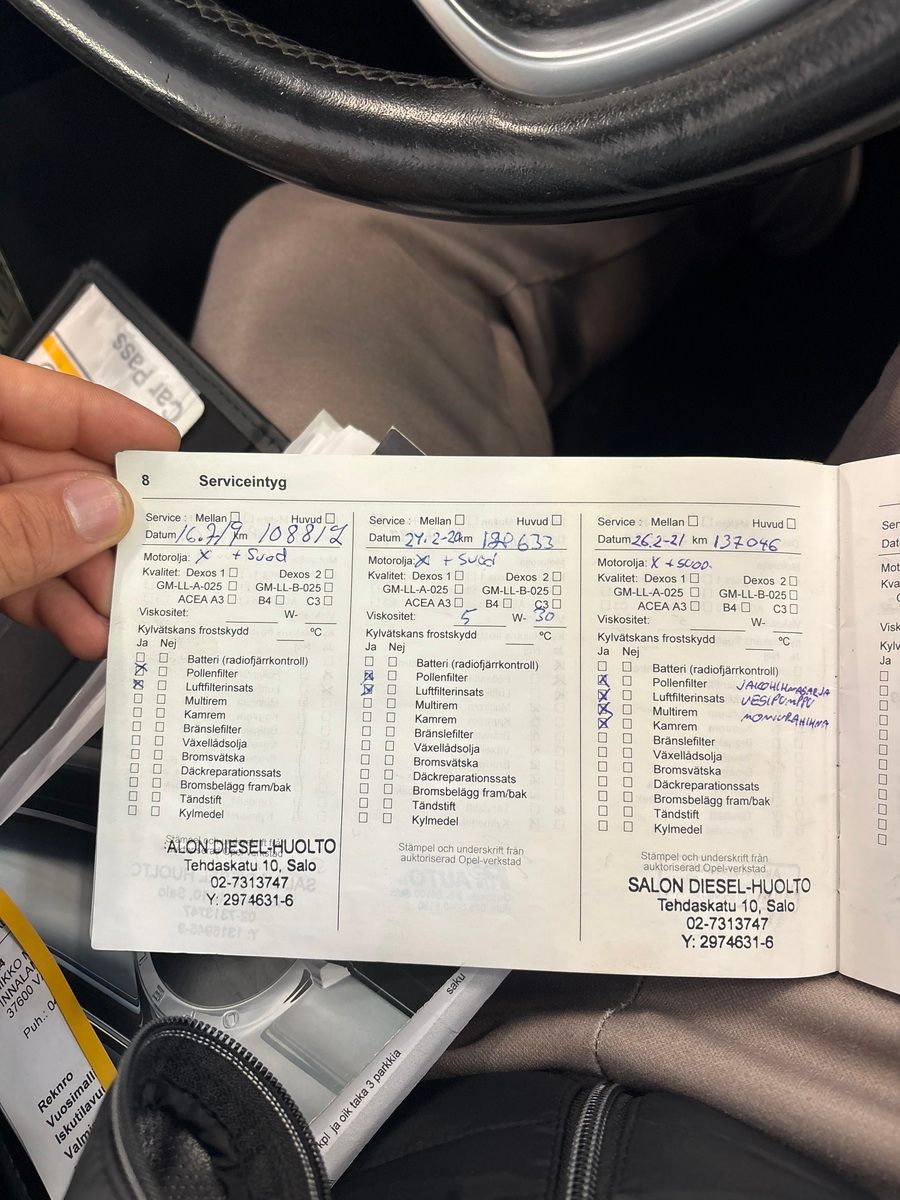 Car Pass
8 Serviceintyg
Service : Mellan Huvud
Datum 16.7/19 km 108812
Motorolja: X + Suod
Kvalitet: Dexos 1 Dexos 2
GM-LL-A-025 GM-LL-B-025
ACEA A3 B4 C3
Viskositet: W-
Kylvätskans frostskydd °C
Ja Nej
Batteri (radiofjärrkontroll)
X Pollenfilter
X Luftfilterinsats
Multirem
Kamrem
Bränslefilter
Växellådsolja
Bromsvätska
Däckreparationssats
Bromsbelägg fram/bak
Tändstift
Kylmedel
Stämpel och underskrift från
auktoriserad Opel-verkstad
ALON DIESEL-HUOLTO
Tehdaskatu 10, Salo
02-7313747
Y: 2974631-6
Service : Mellan Huvud
Datum 24.2-20 km 120633
Motorolja: X + Suod
Kvalitet: Dexos 1 Dexos 2
GM-LL-A-025 GM-LL-B-025
ACEA A3 B4 C3
Viskositet: 5 W- 30
Kylvätskans frostskydd °C
Ja Nej
Batteri (radiofjärrkontroll)
X Pollenfilter
X Luftfilterinsats
Multirem
Kamrem
Bränslefilter
Växellådsolja
Bromsvätska
Däckreparationssats
Bromsbelägg fram/bak
Tändstift
Kylmedel
Stämpel och underskrift från
auktoriserad Opel-verkstad
Service : Mellan Huvud
Datum 26.2-21 km 137046
Motorolja: X + suod.
Kvalitet: Dexos 1 Dexos 2
GM-LL-A-025 GM-LL-B-025
ACEA A3 B4 C3
Viskositet: W-
Kylvätskans frostskydd °C
Ja Nej
Batteri (radiofjärrkontroll)
X Pollenfilter JAKOHIHNASARJA
X Luftfilterinsats VESIPUMPPU
X Multirem MONIURAHIHNA
X Kamrem
Bränslefilter
Växellådsolja
Bromsvätska
Däckreparationssats
Bromsbelägg fram/bak
Tändstift
Kylmedel
Stämpel och underskrift från
auktoriserad Opel-verkstad
SALON DIESEL-HUOLTO
Tehdaskatu 10, Salo
02-7313747
Y: 2974631-6
Ja
37600
Puh.:
Reknro
Vuosimall
Iskutilavu
Valmi
kpl ja oik taka 3 parkkia
saku